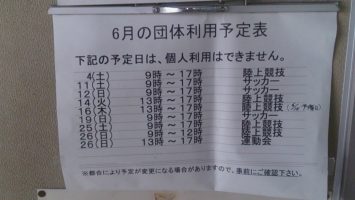 6月の団体利用予定表
下記の予定日は、個人利用はできません。
4(土) 9時～17時 陸上競技
11(土) 9時～17時 サッカー
12(日) 9時～17時 サッカー
14(火) 13時～17時 陸上競技
16(木) 13時～17時 陸上競技
19(日) 9時～17時 サッカー
25(土) 9時～17時 陸上競技
26(日) 9時～12時 陸上競技
26(日) 13時～17時 運動会
※都合により予定が変更になる場合がありますので、事前にご確認下さい。